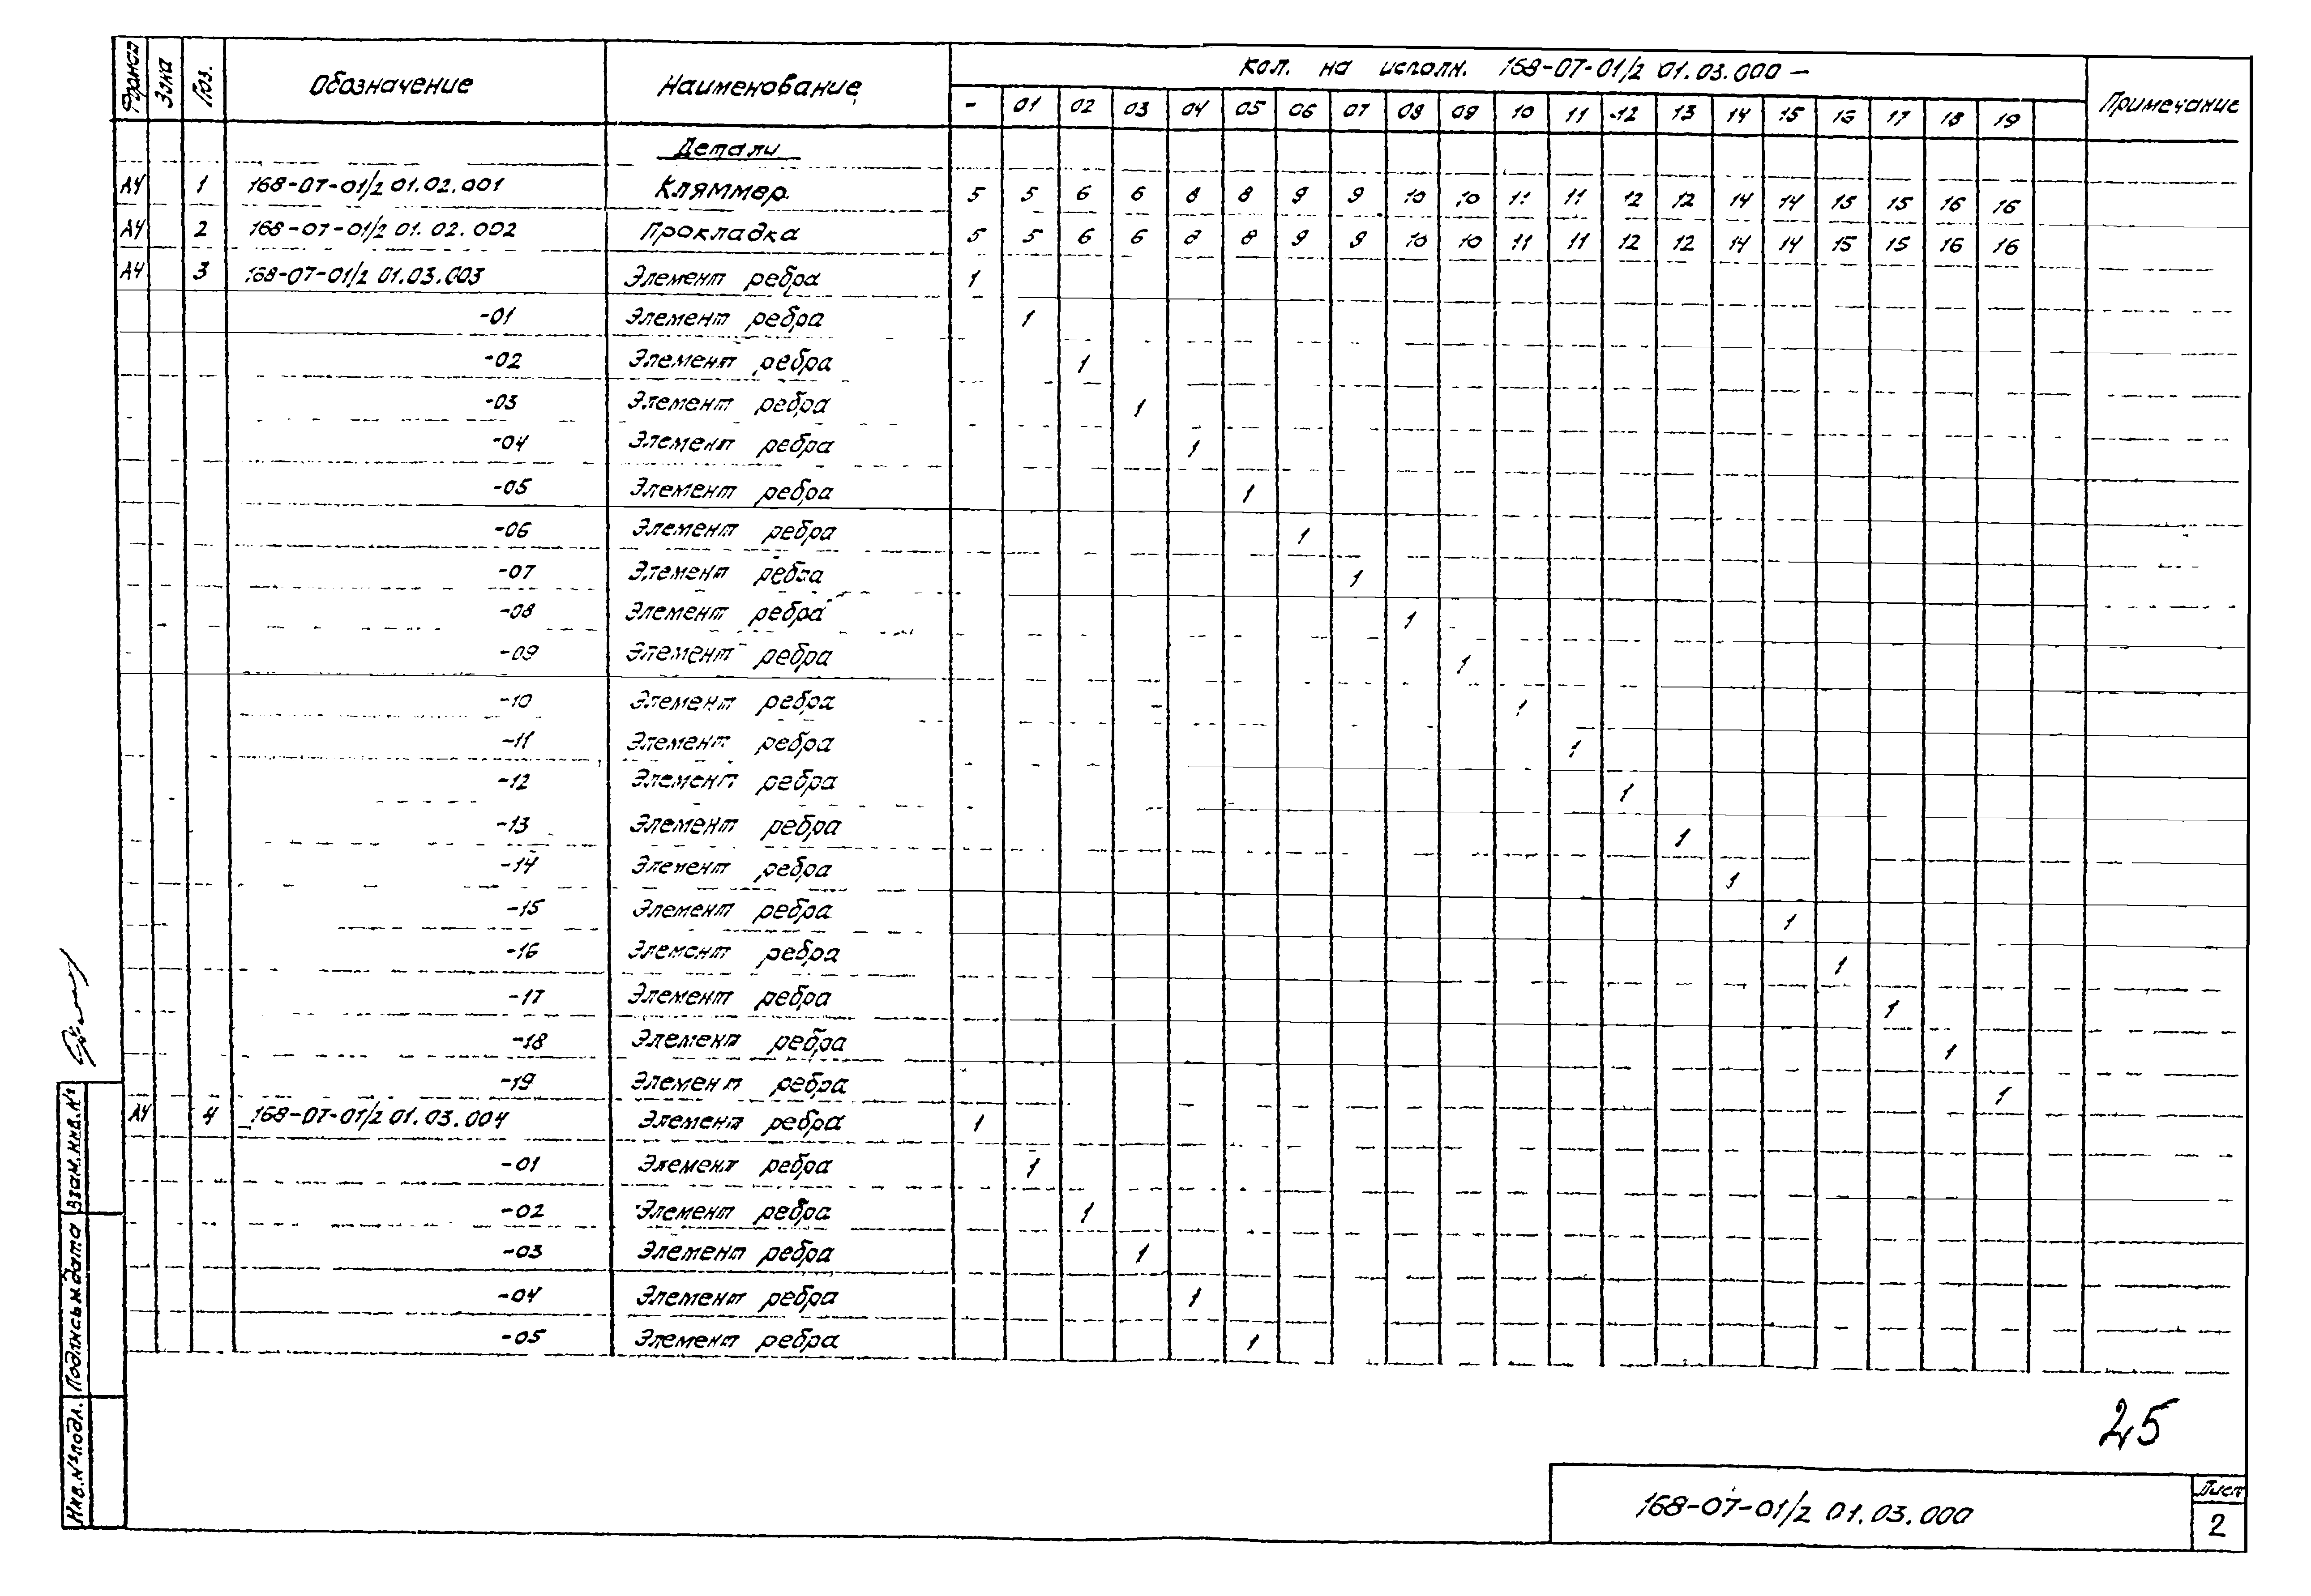 Формат Зона Поз. Обозначение Наименование Кол. на исполн. 168-07-01/2 01.03.000 — Примечание
- 01 02 03 04 05 06 07 08 09 10 11 12 13 14 15 16 17 18 19
Детали
А4 1 168-07-01/2 01.02.001 Кляммер 5 5 6 6 8 8 9 9 10 10 11 11 12 12 14 14 15 15 16 16
А4 2 168-07-01/2 01.02.002 Прокладка 5 5 6 6 8 8 9 9 10 10 11 11 12 12 14 14 15 15 16 16
А4 3 168-07-01/2 01.03.003 Элемент ребра 1
-01 Элемент ребра 1
-02 Элемент ребра 1
-03 Элемент ребра 1
-04 Элемент ребра 1
-05 Элемент ребра 1
-06 Элемент ребра 1
-07 Элемент ребра 1
-08 Элемент ребра 1
-09 Элемент ребра 1
-10 Элемент ребра 1
-11 Элемент ребра 1
-12 Элемент ребра 1
-13 Элемент ребра 1
-14 Элемент ребра 1
-15 Элемент ребра 1
-16 Элемент ребра 1
-17 Элемент ребра 1
-18 Элемент ребра 1
-19 Элемент ребра 1
А4 4 168-07-01/2 01.03.004 Элемент ребра 1
-01 Элемент ребра 1
-02 Элемент ребра 1
-03 Элемент ребра 1
-04 Элемент ребра 1
-05 Элемент ребра 1
Взам.инв.№
Подпись и дата
Инв.№ подл.
25
168-07-01/2 01.03.000
Лист
2